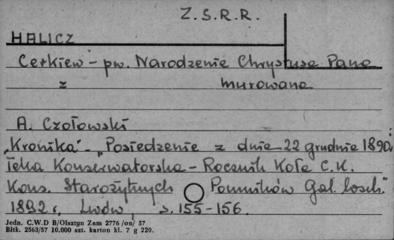 Z.S.R.R.
HALICZ
Cerkiew - pw. Narodzenie Chrystusa Pana
z murowana
A. Czołowski
„Kronika" - „Posiedzenie z dnia 22 grudnia 1890,
Teka Konserwatorska - Rocznik Koła C.K.
Kons. Starożytnych Pomników Gal. wsch."
1892 r, Lwów, s. 155-156.
Jedn. C.W.D B/Olsztyn Zam 2776/on/57
Błtk. 2563/57 10.000 szt. karton kl. 7 g 220.